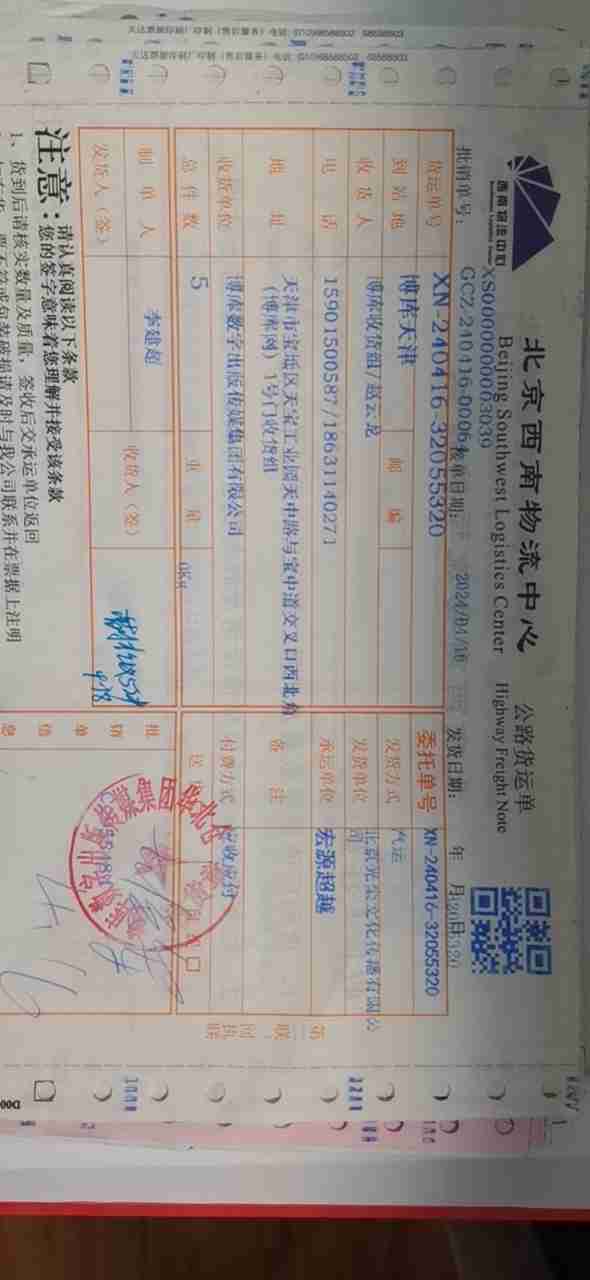 西南物流中心
北京西南物流中心
Beijing Southwest Logistics Center
公路货运单
Highway Freight Note
XS0000000003039
批销单号：
GCZ-240416-0006
接单日期：
2024/04/16
发货日期：
年 月 日
货运单号
XN-240416-32055320
委托单号
XN-240416-32055320
到站地
博库天津
邮编
发货方式
汽运
收货人
博库收货组/赵云龙
发货单位
北京光尘文化传播有限公司
电话
15901500587/18631140271
承运单位
宏源超越
地址
天津市宝坻区天宝工业园天中路与宝中道交叉口西北角
（博库网）1号门收货组
备注
收货单位
博库数字出版传媒集团有限公司
付费方式
应收应付
总件数
5
重量
0Kg
制单人
李建超
收货人（签）
发货人（签）
批销单信息
第三联：回执联
注意：
请认真阅读以下条款
您的签字意味着您理解并接受该条款
1、货到后请核实数量及质量，签收后交承运单位返回